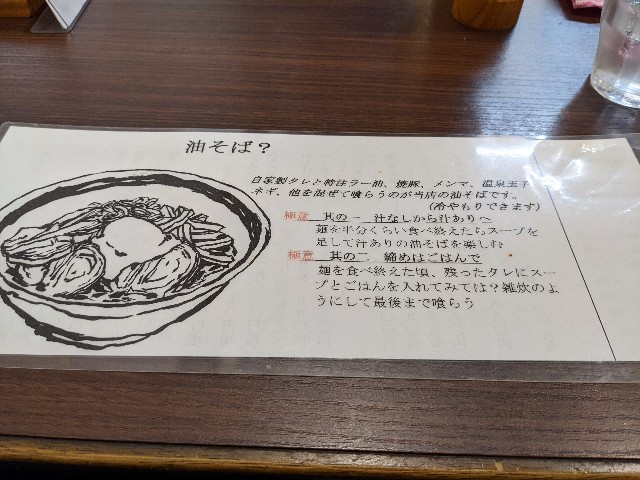 油そば？
自家製タレと特注ラー油、焼豚、メンマ、温泉玉子
ネギ、他を混ぜて喰らうのが当店の油そばです。
(冷やもりできます)
極意 其の一 汁なしから汁ありへ
麺を半分くらい食べ終えたらスープを
足して汁ありの油そばを楽しむ
極意 其の二 締めはごはんで
麺を食べ終えた頃、残ったタレにスー
プとごはんを入れてみては？雑炊のよ
うにして最後まで喰らう